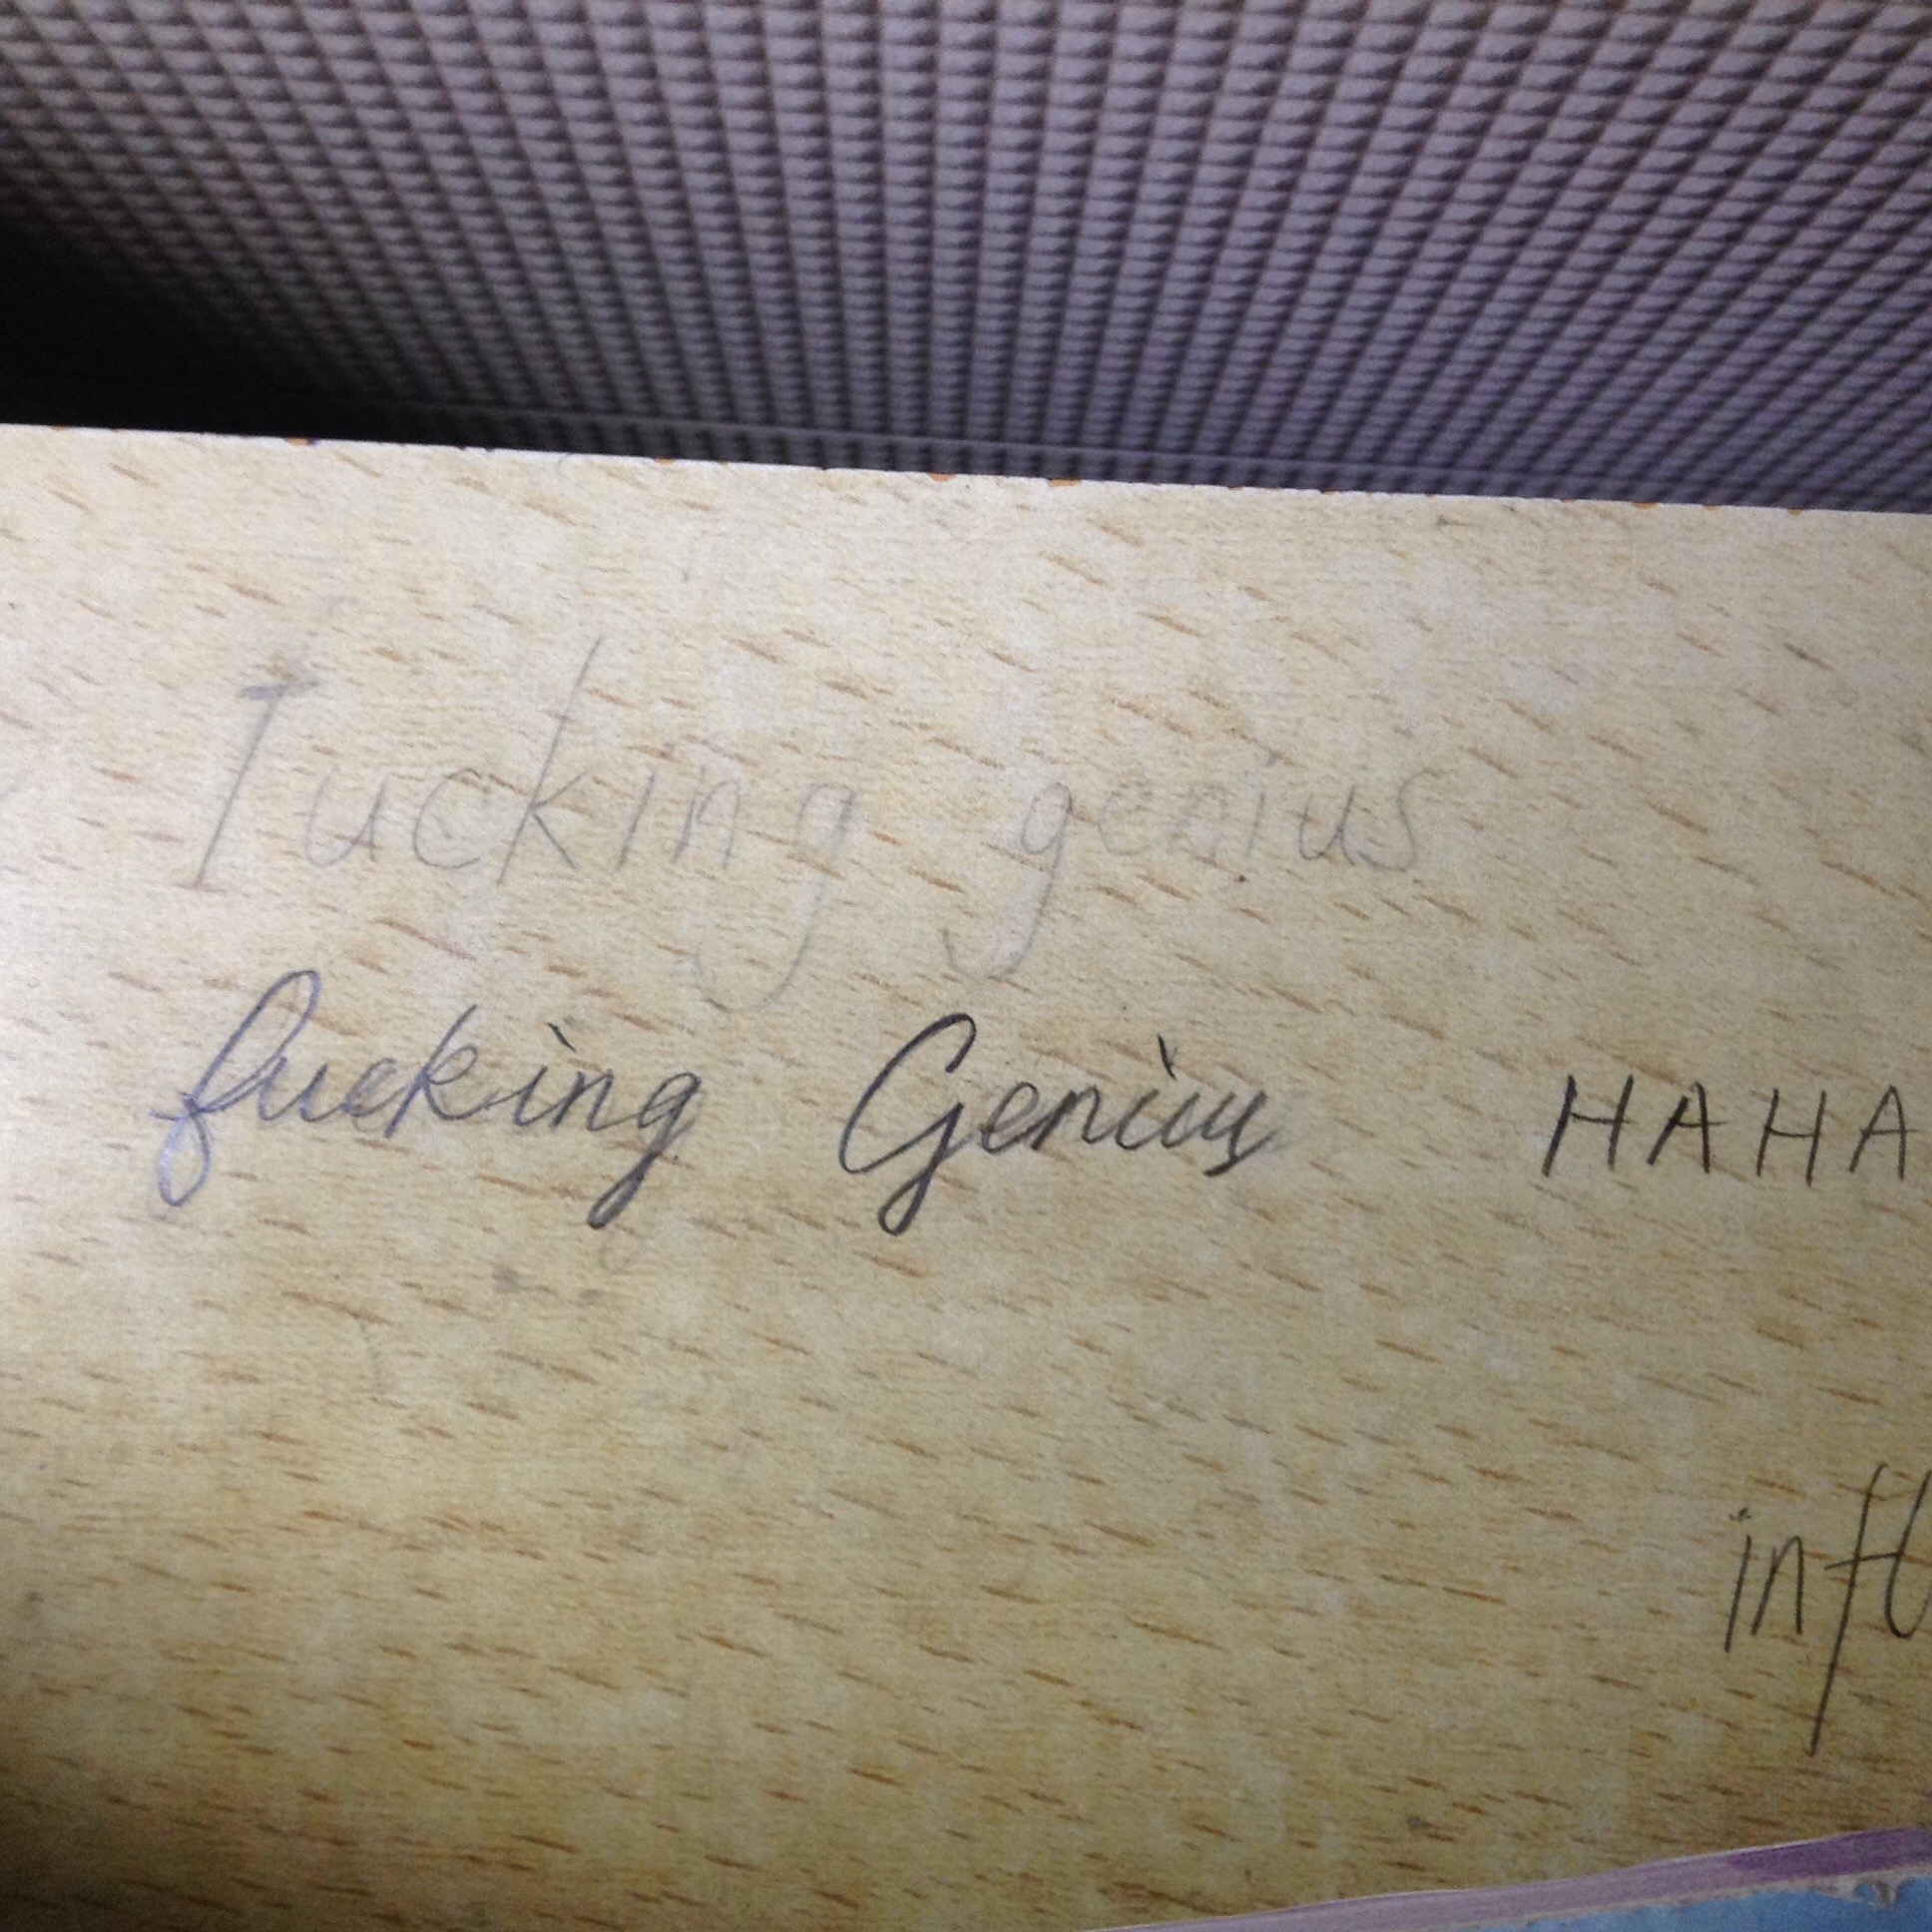 fucking genius
fucking Genius HAHA
infl